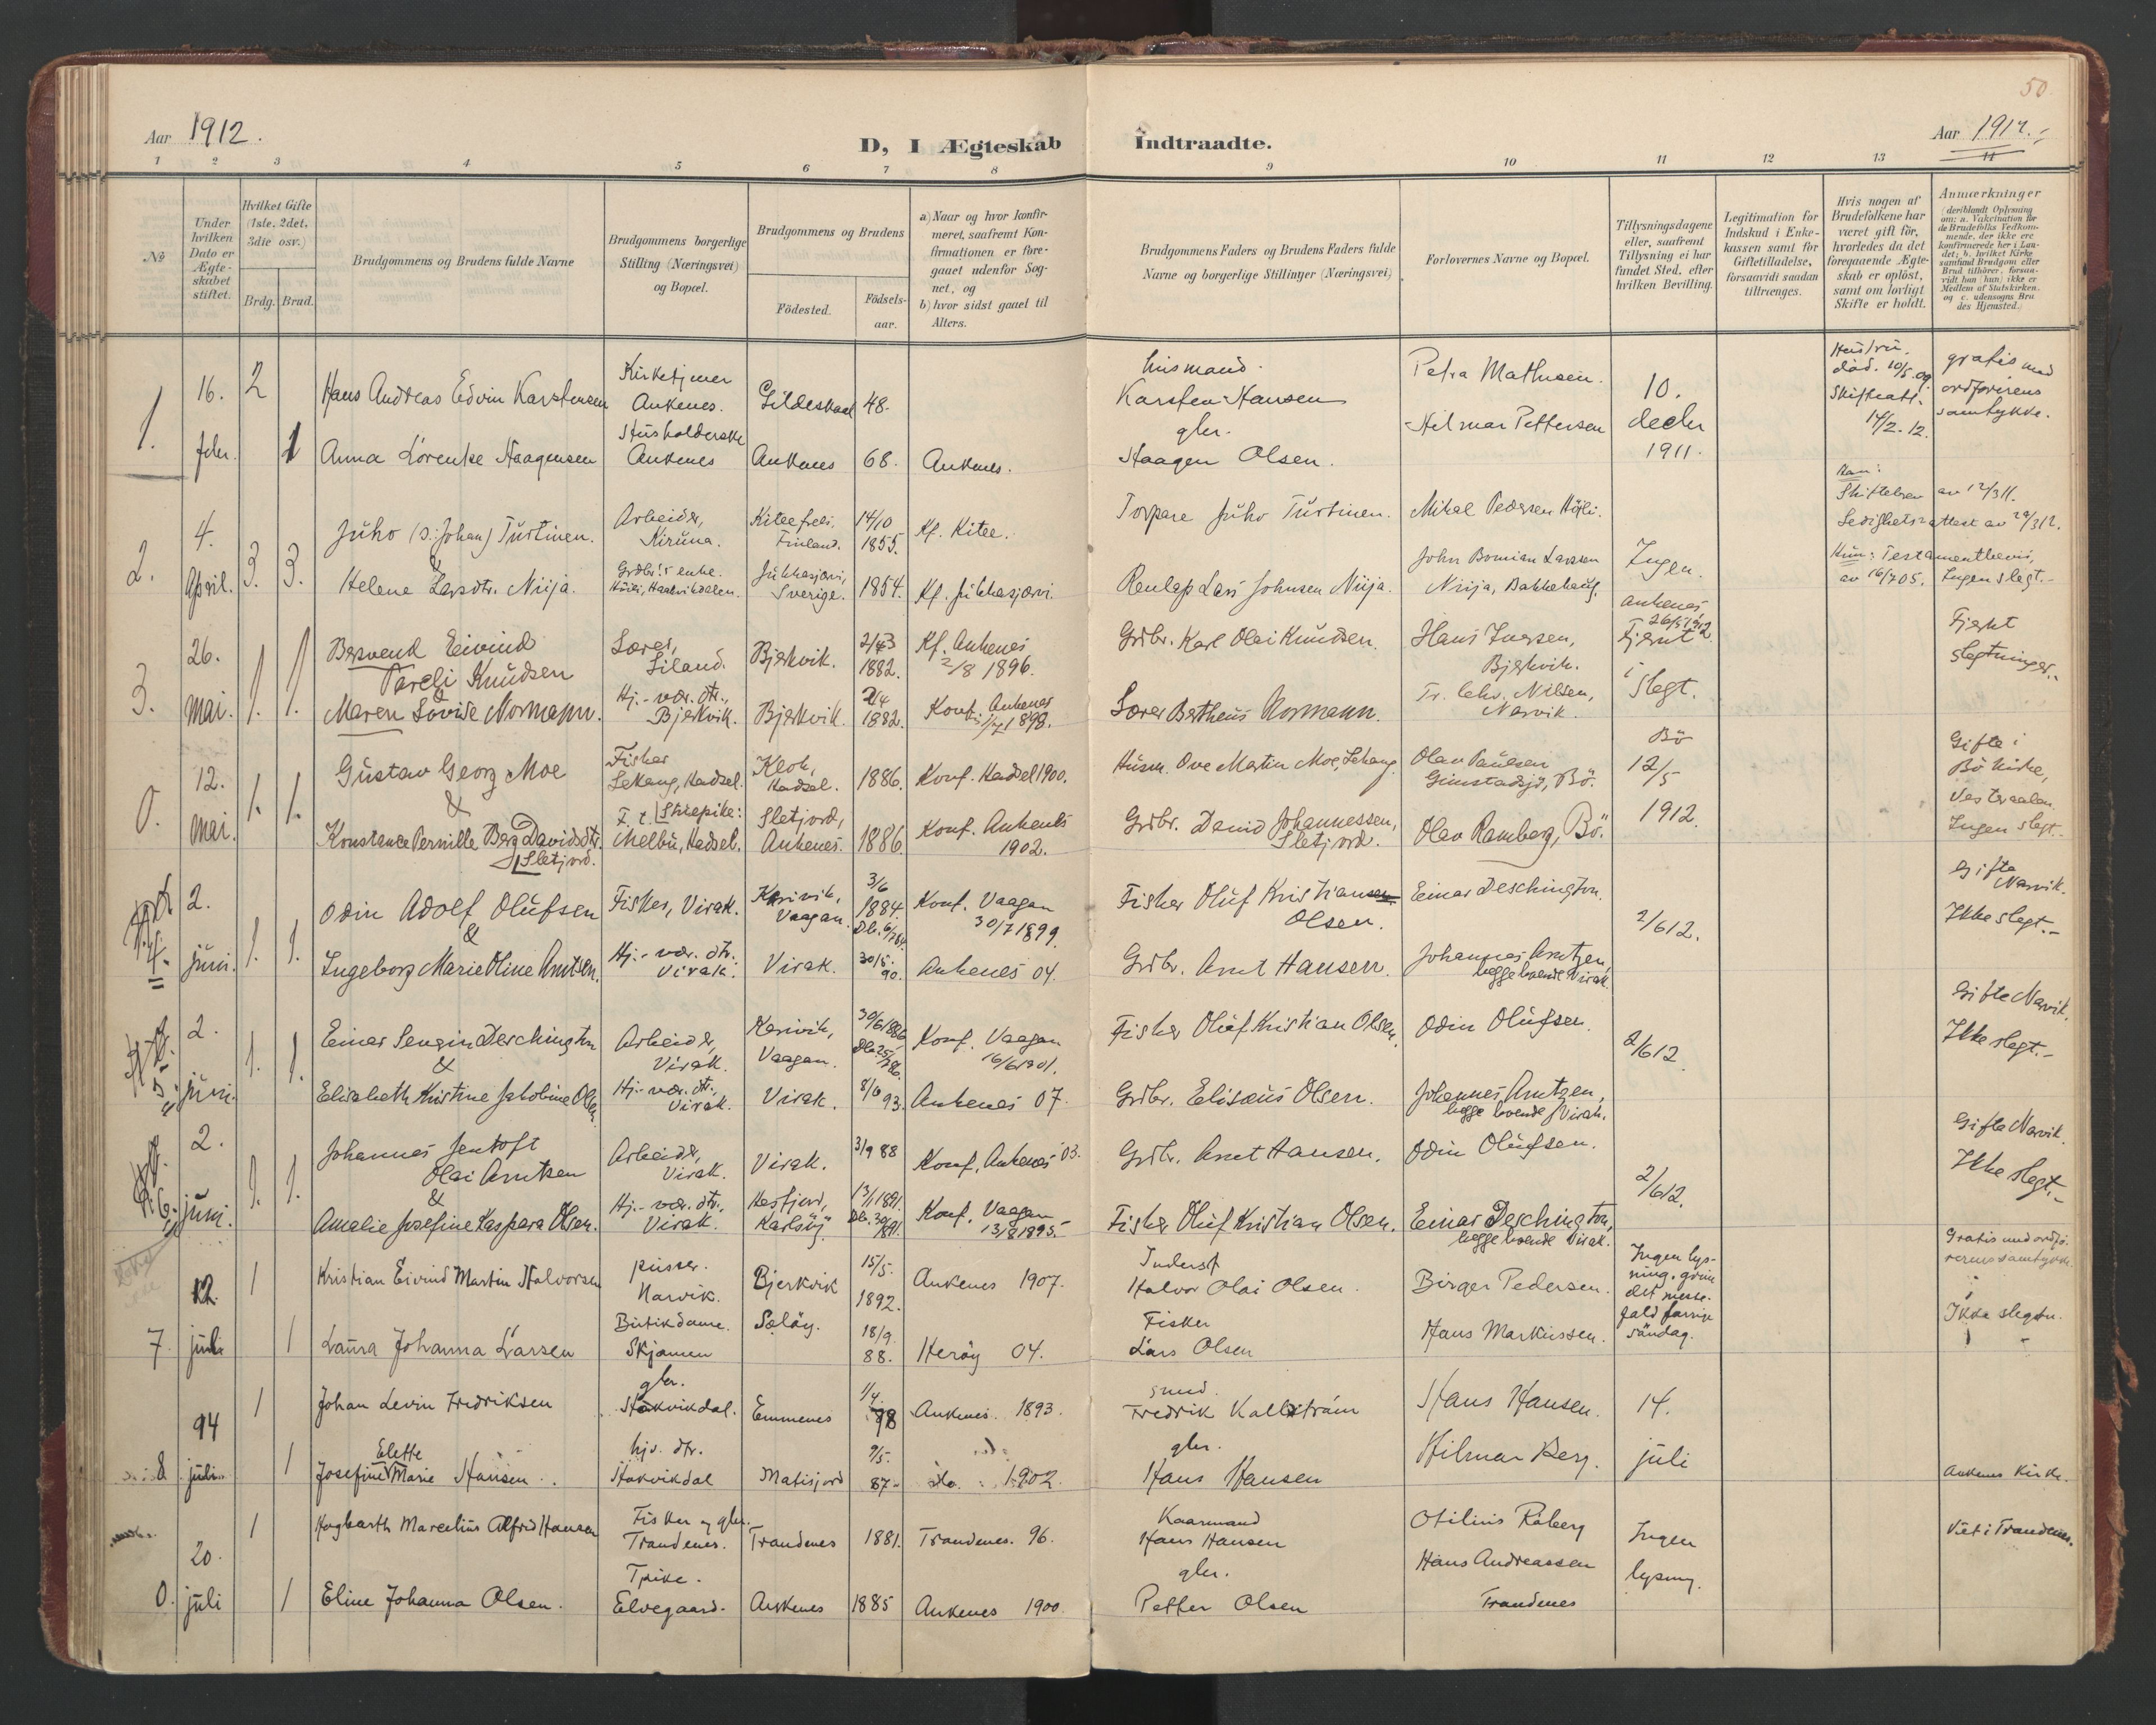 50
Aar 1912.
D, I Ægteskab Indtraadte.
Aar 1912.
1 2 3 4 5 6 7 8 9 10 11 12 13 14
№
Under hvilken Dato er Ægteskabet stiftet.
Hvilket Gifte (1ste, 2det, 3die osv.)
Brdg. Brud.
Brudgommens og Brudens fulde Navne
Brudgommens borgerlige Stilling (Næringsvei) og Bopæl.
Brudgommens og Brudens
Födested.
Födselsaar.
a) Naar og hvor konfirmeret, saafremt Konfirmationen er foregaaet udenfor Sognet, og
b) hvor sidst gaaet til Alters.
Brudgommens Faders og Brudens Faders fulde Navne og borgerlige Stillinger (Næringsvei)
Forlovernes Navne og Bopæl.
Tillysningsdagene eller, saafremt Tillysning ei har fundet Sted, efter hvilken Bevilling.
Legitimation for Indskud i Enkekassen samt for Giftetilladelse, forsaavidt saadan tiltrænges.
Hvis nogen af Brudefolkene har været gift för, hvorledes da det foregaaende Ægteskab er oplöst, samt om lovligt Skifte er holdt.
Anmærkninger (deriblandt Oplysning om: a. Vakcination for de Brudefolks Vedkommende, der ikke ere konfirmerede her i Landet; b. hvilket Kirkesamfund Brudgom eller Brud tilhörer, forsaavidt han (hun) ikke er Medlem af Statskirken, og c. udensogns Brudes Hjemsted.)
1. 16. febr. 2 Hans Andreas Edvin Karstensen Kirketjener Ankenes. Gildeskaal 48. Husmand Karsten Hansen Petra Mathisen. 10. decbr 1911. Hustru död. 10/5.09. Skifteatt. 14/2.12. gratis med ordförerens samtykke.
1 Anna Lorentse Haagensen Husholderske Ankenes Ankenes 68. Ankenes. gbr. Haagen Olsen. Hilmar Pettersen
2. 4. April. 3. 3. Juho (o: Johan) Turtinen. Arbeider, Kiruna. Kitee Finland. 14/10 1855. Kf. Kitee. Torpare Juho Turtinen. Mikal Pedersen Ingen. Skiftebrev av 12/3 11. Ledighetsattest av 29/3 12.
& Helene Larsdtr. Niija. Grdbr's enke. Jukkasjärvi, Sverige. 1854. Kf. Jukkasjärvi. Lars Johnsen Niija. John Larsen Niija, Bakkehaug. Hun: Testamentbevis av 16/7 05. Ingen slegt.-
3. 26. mai. 1. 1. Bersvend Eivind Pareli Knudsen Lærer, Liland. Bjerkvik. 1882. Kf. Ankenes 2/8 1896. Grdbr. Karl Olai Knudsen. Hans Iversen, Bjerkvik. Ankenes 26/5 1912 Fjernt i slegt. Fjernt slegtninger.
& Maren Lovise Normann. Hj.-vær. dtr., Bjerkvik. Bjerkvik. 2/4 1882. Konf. Ankenes 1898. Lærer Bertheus Normann. Nilsen, Narvik.
0. 12. mai. 1. 1. Gustav Georg Moe Fisker Lekang, Hadsel. Klok, Hadsel. 1886. Konf. Hadsel 1900. Husm. Ove Martin Moe, Lekang. Olav Paulsen Bö. Bö 12/5 1912. Gifte i Bö kirke, Vesteraalen. Ingen slegt.-
& Konstance Pernille Berg Davidsdtr. Sletjord. F. t. Melbu, Hadsel. Sletjord, Ankenes. 1886. Konf. Ankenes 1902. Grdbr. David Johannessen, Sletjord. Olav Ramberg, Bö.
4. 2. juni. 1. 1. Odin Adolf Olufsen Fisker, Virak. Vaagan. 3/6 1884. Konf. Vaagan 30/7 1899. Fisker Oluf Kristian Olsen. Einar Deschington. 2/6 12. Gifte Narvik. Ikke slegt.-
& Ingeborg Marie Oline Arntsen. Hj.-vær. dtr. Virak. Virak. 30/5. 90. Ankenes 04. Grdbr. Arnt Hansen. Johannes Arntzen, begge boende Virak.
5. 2. juni. 1. 1. Einar Deschington Arbeider, Virak. Vaagan. 30/6 1886. Konf. Vaagan 16/6 1901. Fisker Oluf Kristian Olsen. Odin Olufsen. 2/6 12. Gifte Narvik. Ikke slegt.-
& Elisabeth Kristine Jakobine Olsen Hj.-vær. dtr., Virak. Virak. 8/6 93. Ankenes 07. Grdbr. Elisæus Olsen. Johannes Arntzen, begge boende Virak.
6. 2. juni. 1. 1. Johannes Jentoft Olai Arntzen Arbeider, Virak. Virak. 3/9 88 Konf. Ankenes 03. Grdbr. Arnt Hansen. Odin Olufsen. 2/6 12. Gifte Narvik. Ikke slegt.-
& Amalie Josefine Kaspara Olsen. Hj.-vær. dtr., Virak. Karlsöy. 13/1 1891. Konf. Vaagan 13/8 1895. Fisker Oluf Kristian Olsen. Einar Deschington, begge boende Virak.
7. 12. juli 1 Kristian Eivind Martin Halvorsen pusser. Narvik. Bjerkvik 15/5. 1892. Ankenes 1907. Inderst Halvor Olai Olsen. Birger Pedersen. Ingen lysning, grundet messefald forrige söndag. Gratis med ordförerens samtykke.
1 Laura Johanna Larsen Butikdame. Skjomen 18/9. 88. Heröy 04. Fisker Lars Olsen Hans Markussen. Ikke slegtn.
8 14 juli 1 Johan Levin Fredriksen gbr. Haakvikdal. Emmenes 1/4 78 Ankenes. 1893. smed. Fredrik Kallström Hans Hansen. 14. juli
1 Josefine Elette Marie Hansen. hjv. dtr. Haakvikdal 9/5. 87. do. 1902. gbr. Hans Hansen Hilmar Berg. Ankenes kirke.
0. 20. juli 1 Hagbarth Marcelius Alfred Hansen Fisker og gbr. Trandenes. Trandenes 1881. Trandenes. 96. Kaarmand Hans Hansen Otilius Råberg Ingen lysning. Viet i Trandenes.
1 Eline Johanna Olsen. Tpike. Elvegaard. Ankenes 1885 Ankenes 1900. gbr. Petter Olsen Hans Andreassen Trandenes